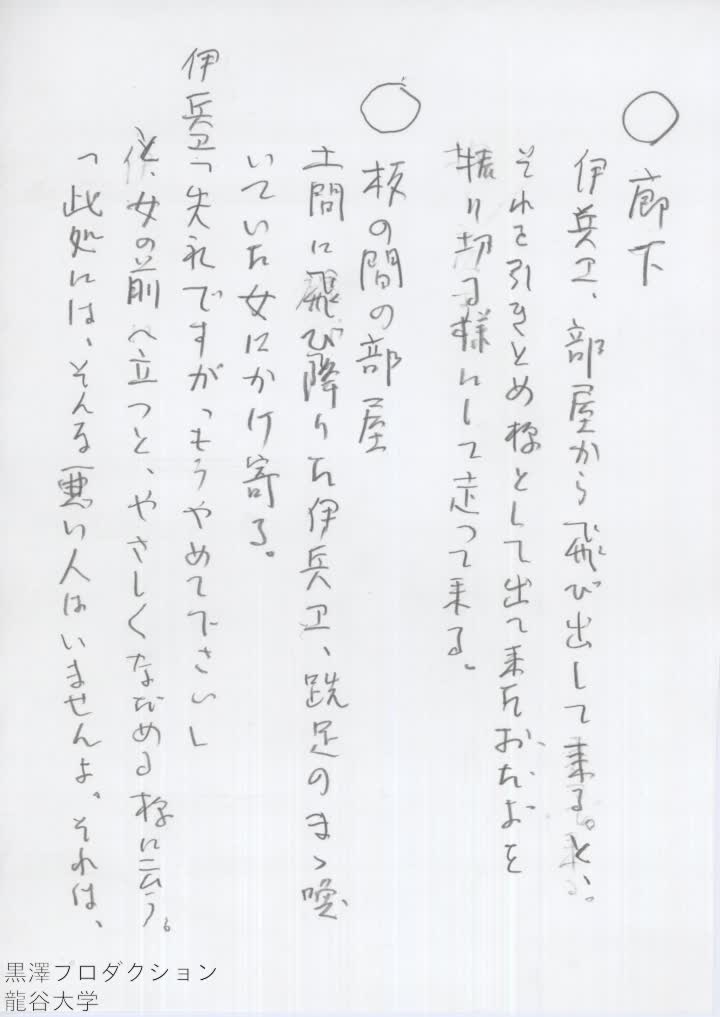 ○ 廊下
伊兵卫、部屋から飛び出して来る。と、
それを引きとめ様として出て来たおたよを
振り切る様にして走って来る。
○ 板の間の部屋
土間に飛び降りた伊兵卫、跣足のまゝ喚
いていた女にかけ寄る。
伊兵卫「失礼ですが、もうやめて下さい」
と、女の前へ立つと、やさしくなだめる様に云う。
「此処には、そんな悪い人はいませんよ、それは、
黒澤プロダクション
龍谷大学